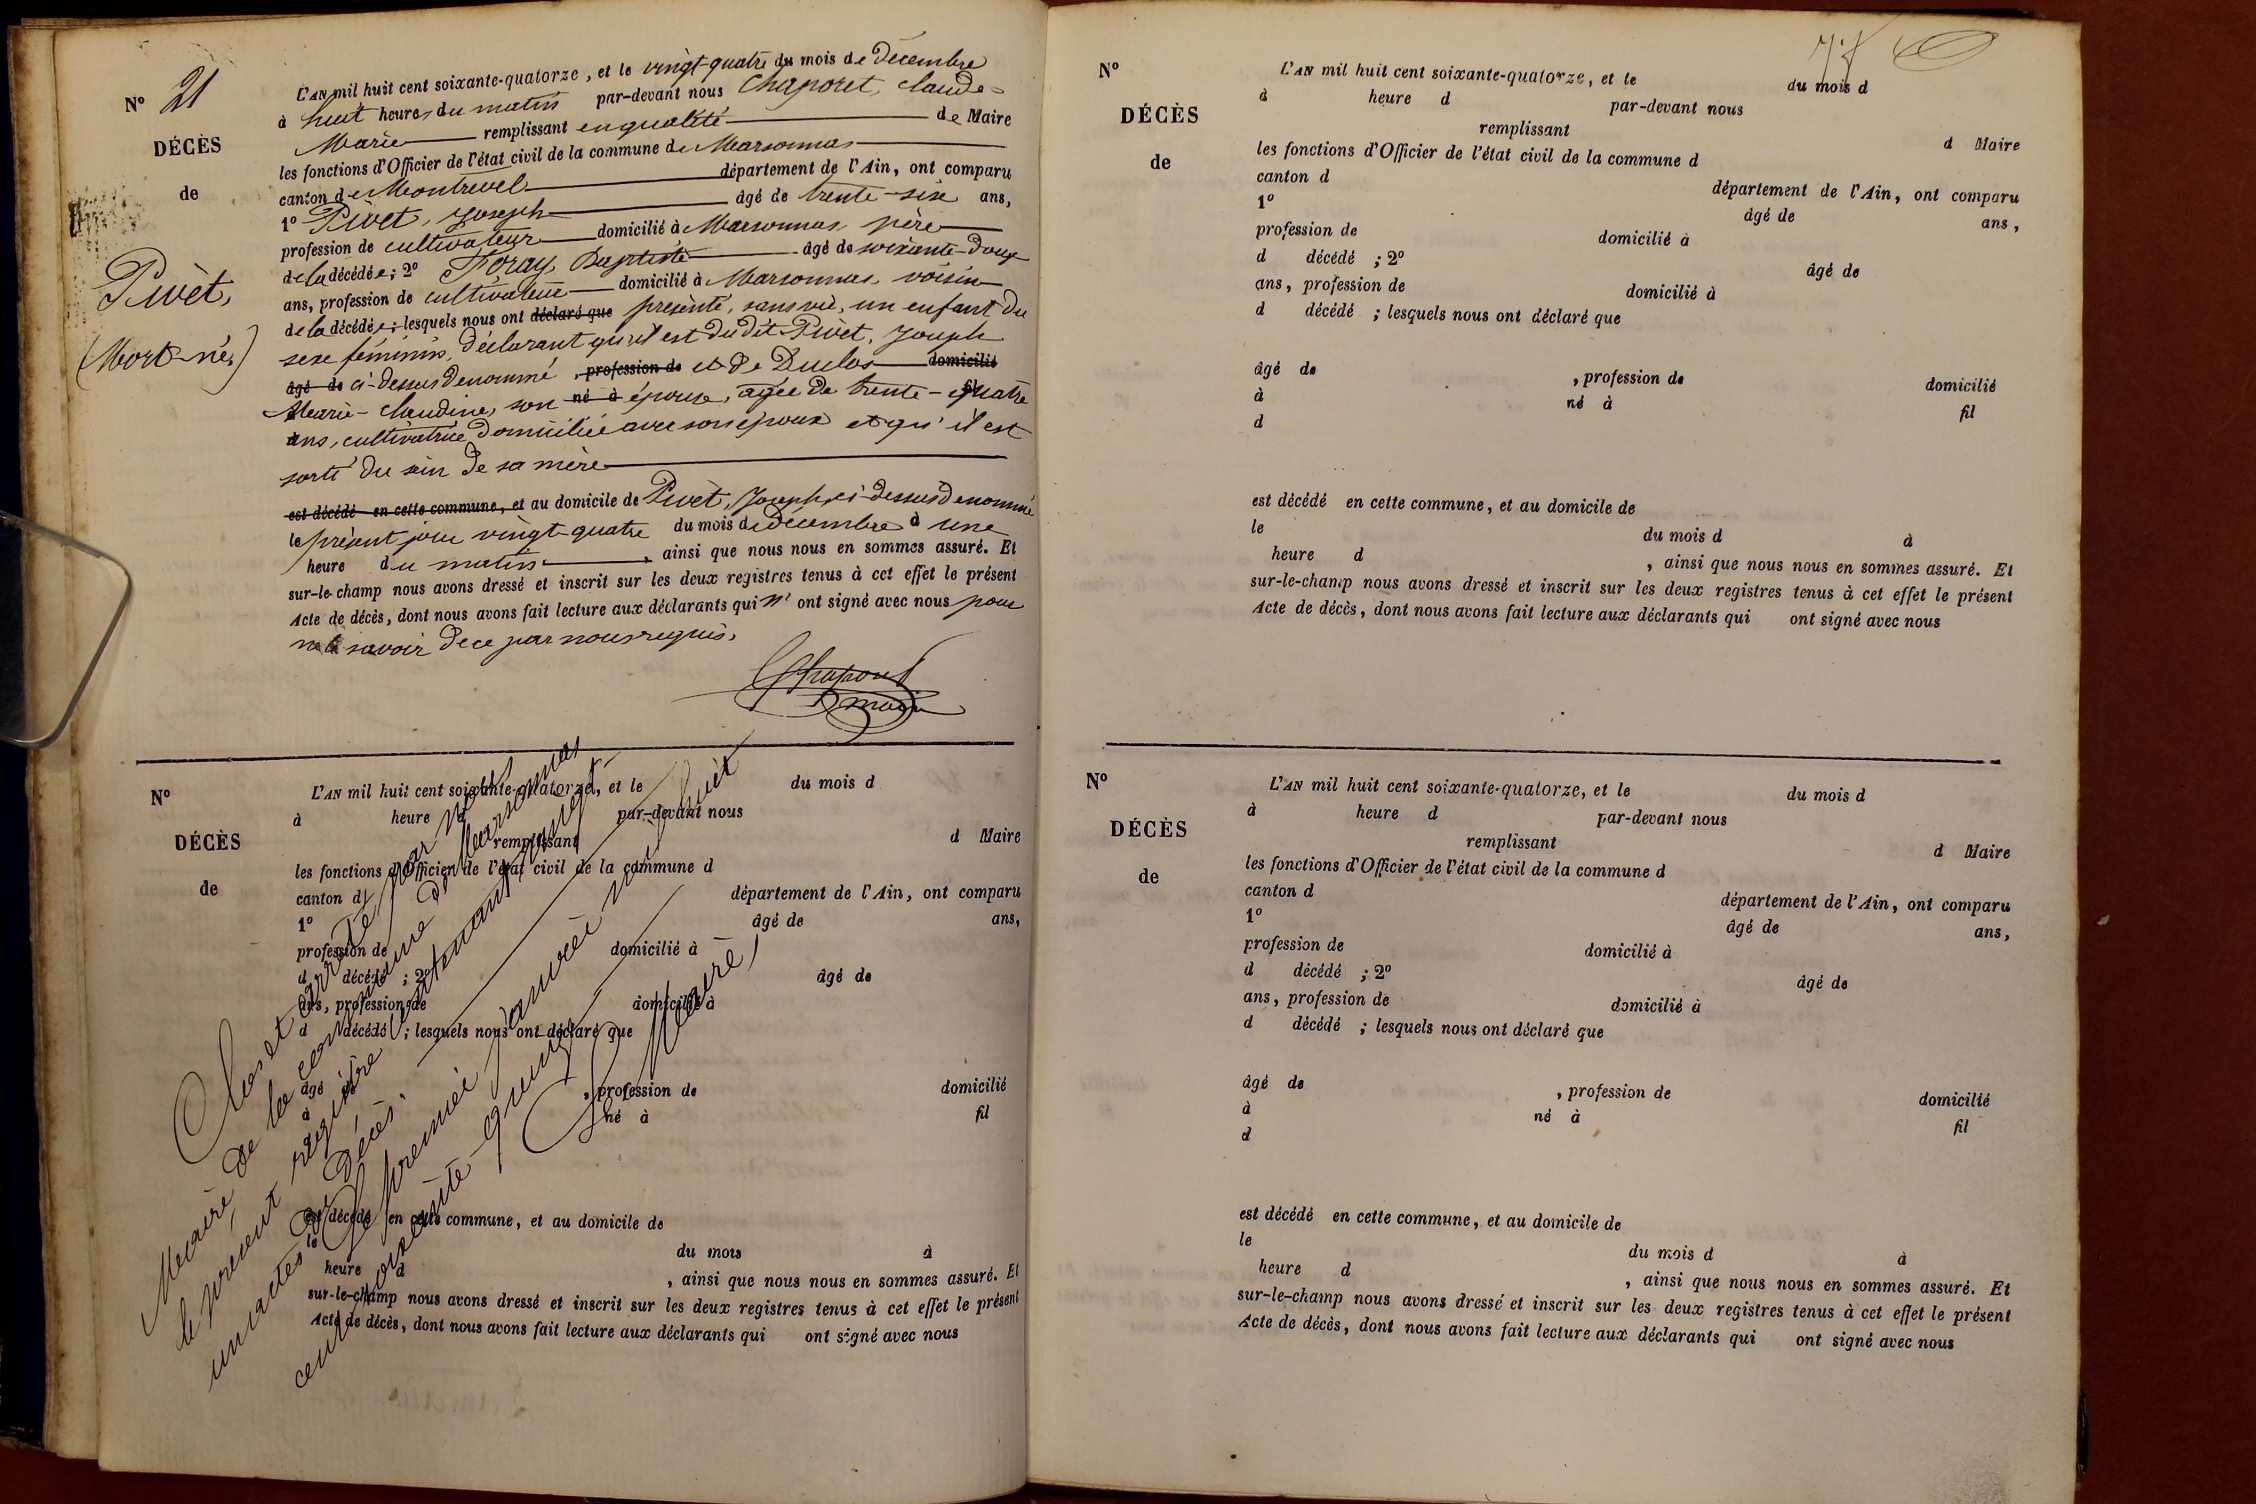 N° 21
DÉCÈS
de
Pivèt,
(Mort-né,)
L'AN mil huit cent soixante-quatorze, et le vingt-quatre du mois de Décembre
à huit heures du matin par-devant nous Chaporet, Claude-
Marie remplissant en qualité de Maire
les fonctions d'Officier de l'état civil de la commune de Marsonnas
canton de Montrevel département de l'Ain, ont comparu
1° Pivet, Joseph âgé de trente-six ans,
profession de cultivateur domicilié à Marsonnas, père
de la décédée; 2° Foray, Baptiste âgé de soixante-douze
ans, profession de cultivateur domicilié à Marsonnas, voisin
de la décédée; lesquels nous ont déclaré que présenté, sans vie, un enfant du
sexe féminin, déclarant qu'il est du dit Pivet, Joseph
âgé de ci-dessus denommé, profession de et de Duclos domicilié
Marie-Claudine, son né à épouse, agée de trente-quatre fil
ans, cultivatrice domiciliée avec son époux et qu'il est
sorti du sein de sa mère
est décédé en cette commune, et au domicile de Pivèt, Joseph, ci-dessus denommé
le présent jour vingt-quatre du mois de décembre à une
heure du matin, ainsi que nous nous en sommes assuré. Et
sur-le-champ nous avons dressé et inscrit sur les deux registres tenus à cet effet le présent
Acte de décès, dont nous avons fait lecture aux déclarants qui n' ont signé avec nous pour
ne le savoir de ce par nous requis.
Chaporet
maire
N°
DÉCÈS
de
L'AN mil huit cent soixante-quatorze, et le du mois d
à heure d par-devant nous
remplissant d Maire
les fonctions d'Officier de l'état civil de la commune d
canton d département de l'Ain, ont comparu
1° âgé de ans,
profession de domicilié à
d décédé ; 2° âgé de
ans, profession de domicilié à
d décédé ; lesquels nous ont déclaré que
âgé de , profession de domicilié
à né à fil
d
est décédé en cette commune, et au domicile de
le du mois à
heure d , ainsi que nous nous en sommes assuré. Et
sur-le-champ nous avons dressé et inscrit sur les deux registres tenus à cet effet le présent
Acte de décès, dont nous avons fait lecture aux déclarants qui ont signé avec nous
Clos et arrêté par nous
Maire de la commune de Marsonnas
le présent registre contenant vingt-
un actes de Décès.
Le premier Janvier mil huit
cent soixante-quinze
Le Maire,
N°
DÉCÈS
de
L'AN mil huit cent soixante-quatorze, et le du mois d
à heure d par-devant nous
remplissant d Maire
les fonctions d'Officier de l'état civil de la commune d
canton d département de l'Ain, ont comparu
1° âgé de ans,
profession de domicilié à
d décédé ; 2° âgé de
ans, profession de domicilié à
d décédé ; lesquels nous ont déclaré que
âgé de , profession de domicilié
à né à fil
d
est décédé en cette commune, et au domicile de
le du mois d à
heure d , ainsi que nous nous en sommes assuré. Et
sur-le-champ nous avons dressé et inscrit sur les deux registres tenus à cet effet le présent
Acte de décès, dont nous avons fait lecture aux déclarants qui ont signé avec nous
N°
DÉCÈS
de
L'AN mil huit cent soixante-quatorze, et le du mois d
à heure d par-devant nous
remplissant d Maire
les fonctions d'Officier de l'état civil de la commune d
canton d département de l'Ain, ont comparu
1° âgé de ans,
profession de domicilié à
d décédé ; 2° âgé de
ans, profession de domicilié à
d décédé ; lesquels nous ont déclaré que
âgé de , profession de domicilié
à né à fil
d
est décédé en cette commune, et au domicile de
le du mois d à
heure d , ainsi que nous nous en sommes assuré. Et
sur-le-champ nous avons dressé et inscrit sur les deux registres tenus à cet effet le présent
Acte de décès, dont nous avons fait lecture aux déclarants qui ont signé avec nous